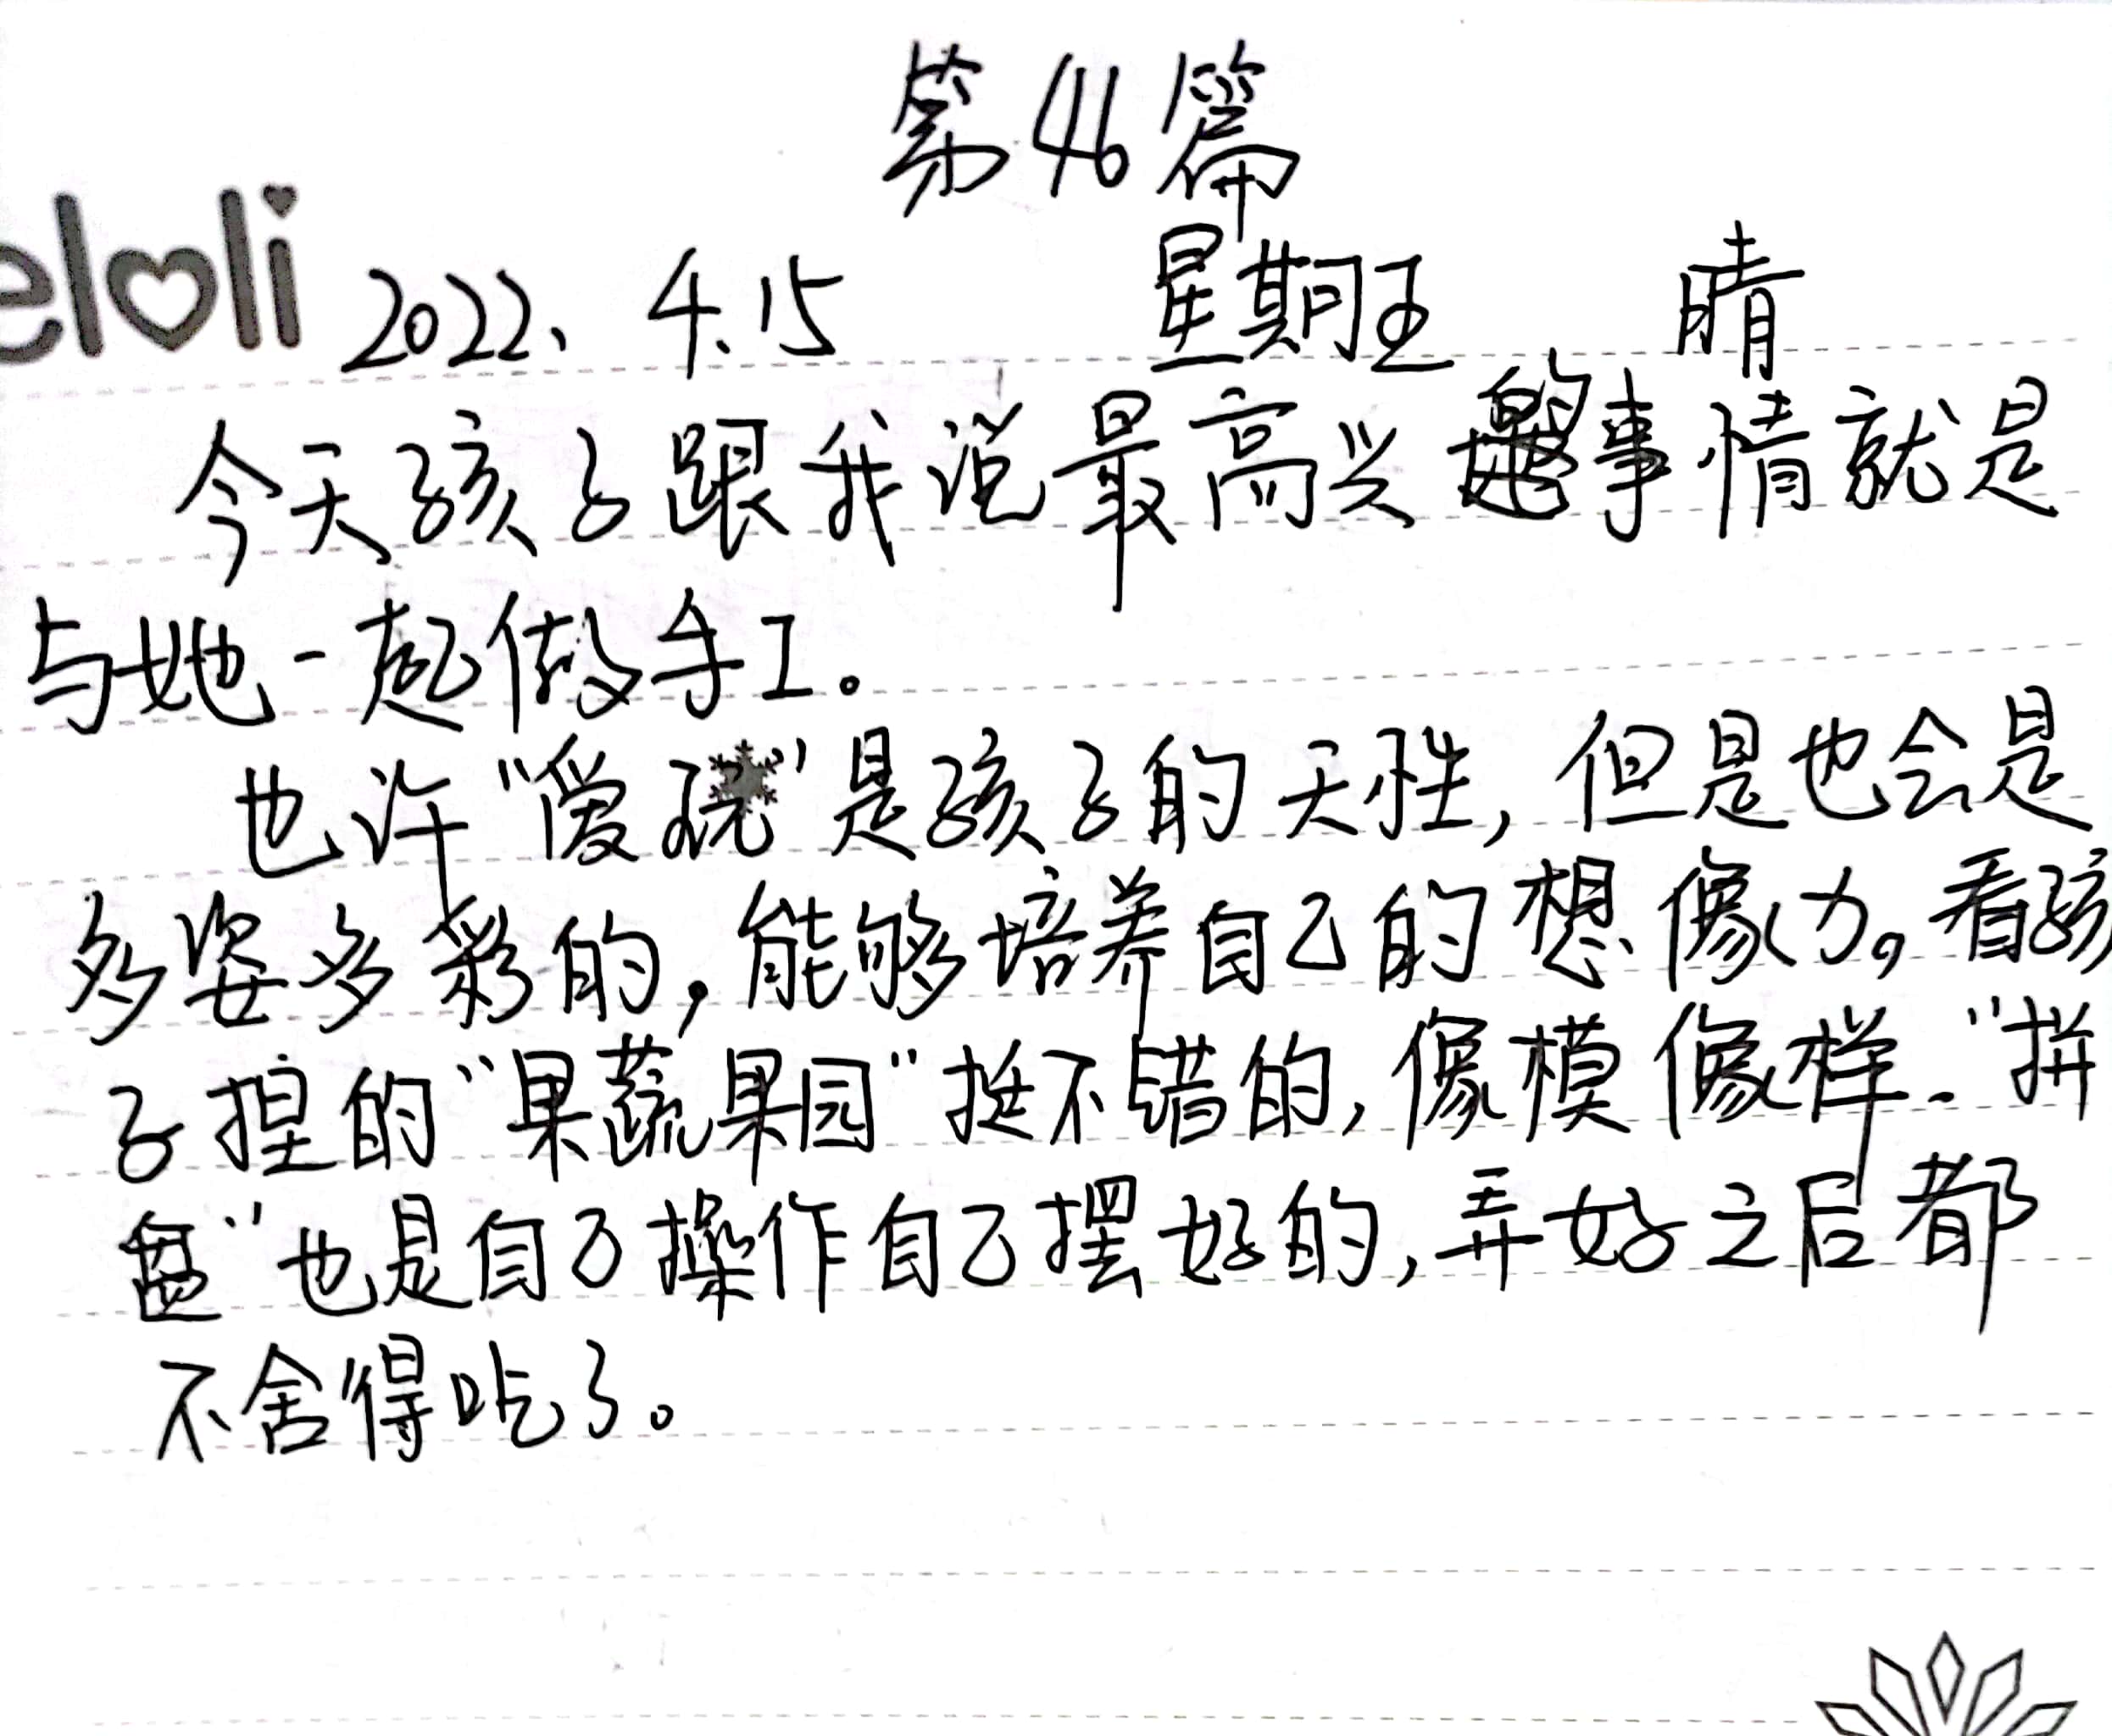 第46篇
eloli
2022、4.15 星期五 晴
今天孩子跟我说最高兴的事情就是
与她一起做手工。
也许“爱玩”是孩子的天性,但是也会是
多姿多彩的,能够培养自己的想像力。看孩
子捏的“果蔬果园”挺不错的,像模像样.“拼
盘”也是自己操作自己摆好的,弄好之后都
不舍得吃了。